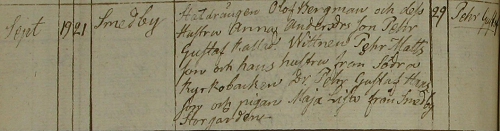 Sept 19 21 Smedby Statdrängen Olof Bergman och dess 29 Pehr Gustaf
Hustru Anna Andersdr son Pehr
Gustaf kallad. Wittnen Pehr Matts
son och hans hustru från Södra
Kyrkobacken dr Pehr Gustaf Hans
son och pigan Maja Lisa från Smedby
Storgården